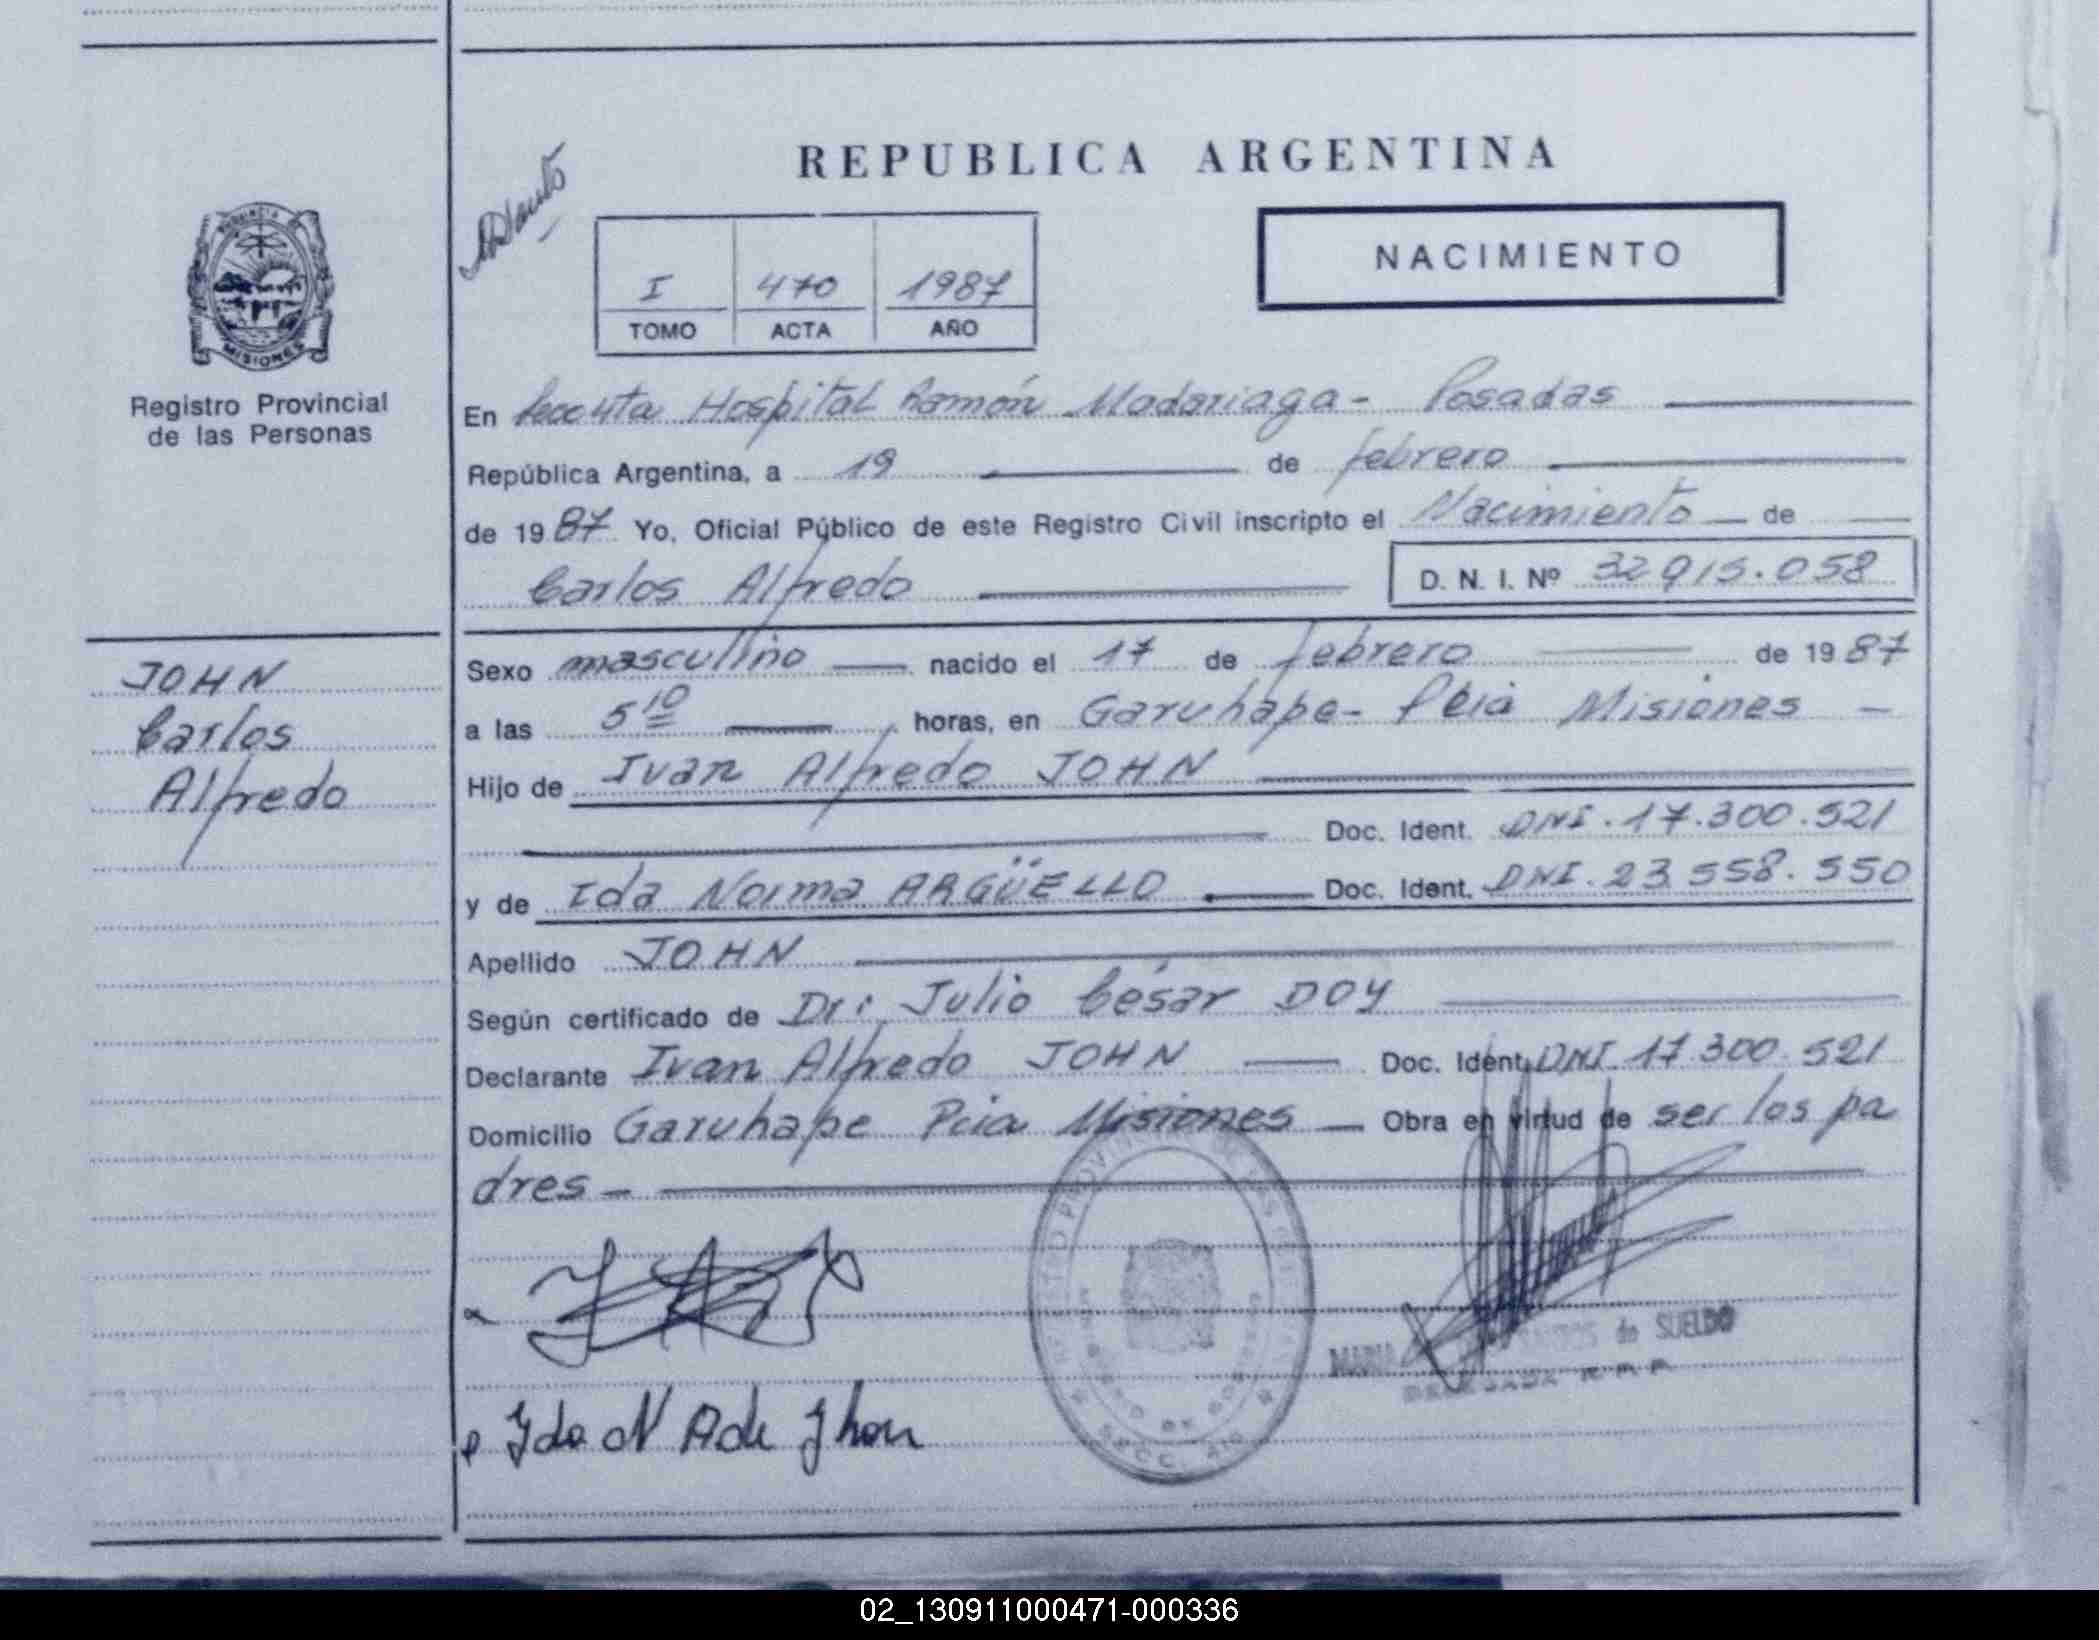 REPUBLICA ARGENTINA
NACIMIENTO
I 470 1987
TOMO ACTA AÑO
PROVINCIA
MISIONES
Registro Provincial
de las Personas
JOHN
Carlos
Alfredo
En Hospital Ramón Madariaga - Posadas
República Argentina, a 19 de febrero
de 1987 Yo, Oficial Público de este Registro Civil inscripto el Nacimiento de
Carlos Alfredo D. N. I. Nº 32 915.058
Sexo masculino nacido el 17 de febrero de 1987
a las 5 10 horas, en Garuhape - Pcia Misiones -
Hijo de Ivan Alfredo JOHN
Doc. Ident. DNI. 17.300.521
y de Ida Norma ARGÜELLO Doc. Ident. DNI. 23 558.550
Apellido JOHN
Según certificado de Dr: Julio César DOY
Declarante Ivan Alfredo JOHN Doc. Ident. DNI. 17 300. 521
Domicilio Garuhape Pcia Misiones — Obra en virtud de ser los pa
dres -
MARIA de SUELDO
Ida N A de Jhon
02_130911000471-000336